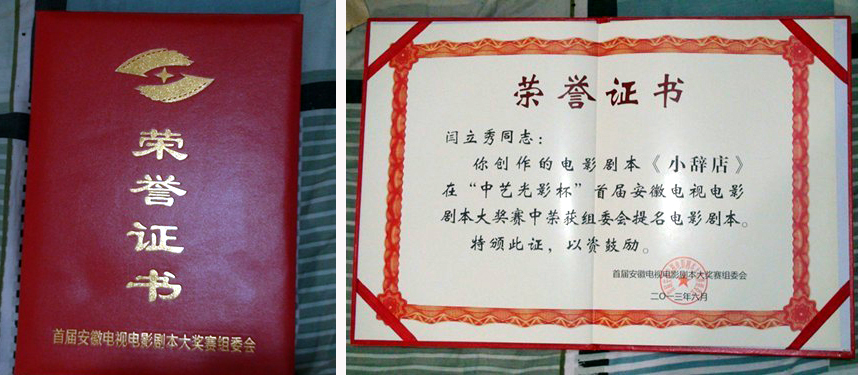 荣
誉
证
书
首届安徽电视电影剧本大奖赛组委会
荣誉证书
闫立秀同志：
你创作的电影剧本《小辞店》
在“中艺光影杯”首届安徽电视电影
剧本大奖赛中荣获组委会提名电影剧本。
特颁此证，以资鼓励。
首届安徽电视电影剧本大奖赛组委会
二〇一三年六月